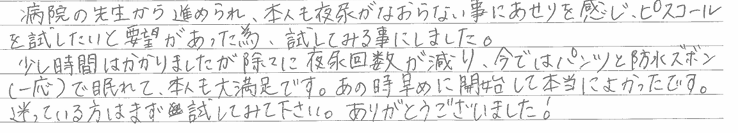 病院の先生から進められ、本人も夜尿がなおらない事にあせりを感じ、ピスコール
を試したいと要望があった為、試してみる事にしました。
少し時間はかかりましたが除々に夜尿回数が減り、今ではパンツと防水ズボン
(一応)で眠れて、本人も大満足です。あの時早めに開始して本当によかったです。
迷っている方はまず試してみて下さい。ありがとうございました!